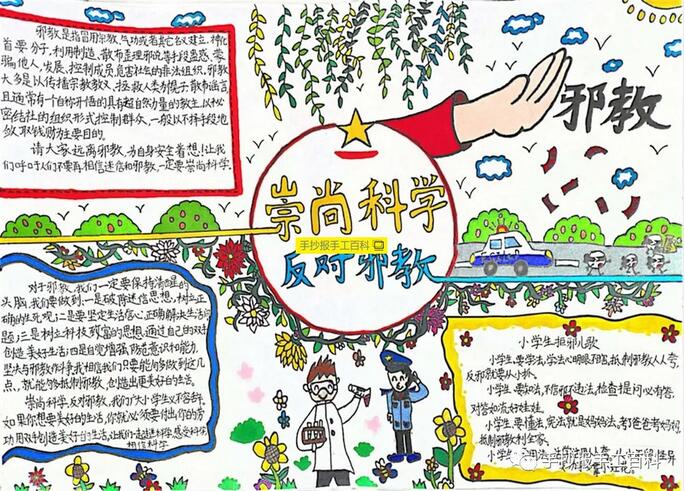 邪教是指冒用宗教、气功或者其它名义建立、神化
首要分子,利用制造、散布歪理邪说等手段蛊惑、蒙
骗他人,发展、控制成员,危害社会的非法组织。邪教
大多是以传播宗教教义、拯救人类为幌子,散布谣言,
且通常有一个自称开悟的具有超自然力量的教主,以秘
密结社的组织形式控制群众,一般以不择手段地
敛取钱财为主要目的。
请大家远离邪教,为自身安全着想!让我
们呼吁人们不要再相信迷信和邪教,一定要崇尚科学。
邪教
崇尚科学
手抄报手工百科
反对邪教
对于邪教,我们一定要保持清醒的
头脑,我们要做到:一是破除迷信思想,树立正
确的生死观;二是要坚定生活信心,正确解决生活问
题;三是树立科技致富的思想,通过自己的双手
创造美好生活;四是自觉增强防范意识和能力,
坚决与邪教作斗争。我相信我们只要能够做到这几
点,就能够抵制邪教,创造出更美好的生活。
崇尚科学,反对邪教,我们广大小学生义不容辞。
如果你想要美好的生活,你就必须要付出,你的劳
动,用双手创造美好的生活,让我们一起走进科学,感受科学,
相信科学
小学生拒邪儿歌
小学生,要学法,学法心明眼睛亮,抵制邪教人人夸,
反邪就要从小抓。
小学生,要知法,不信邪不违法,检查提问必有答,
对答如流好娃娃。
小学生,要懂法,宪法就是妈妈法,考考爸爸考妈妈,
抵制邪教利全家。
手抄报手工百科